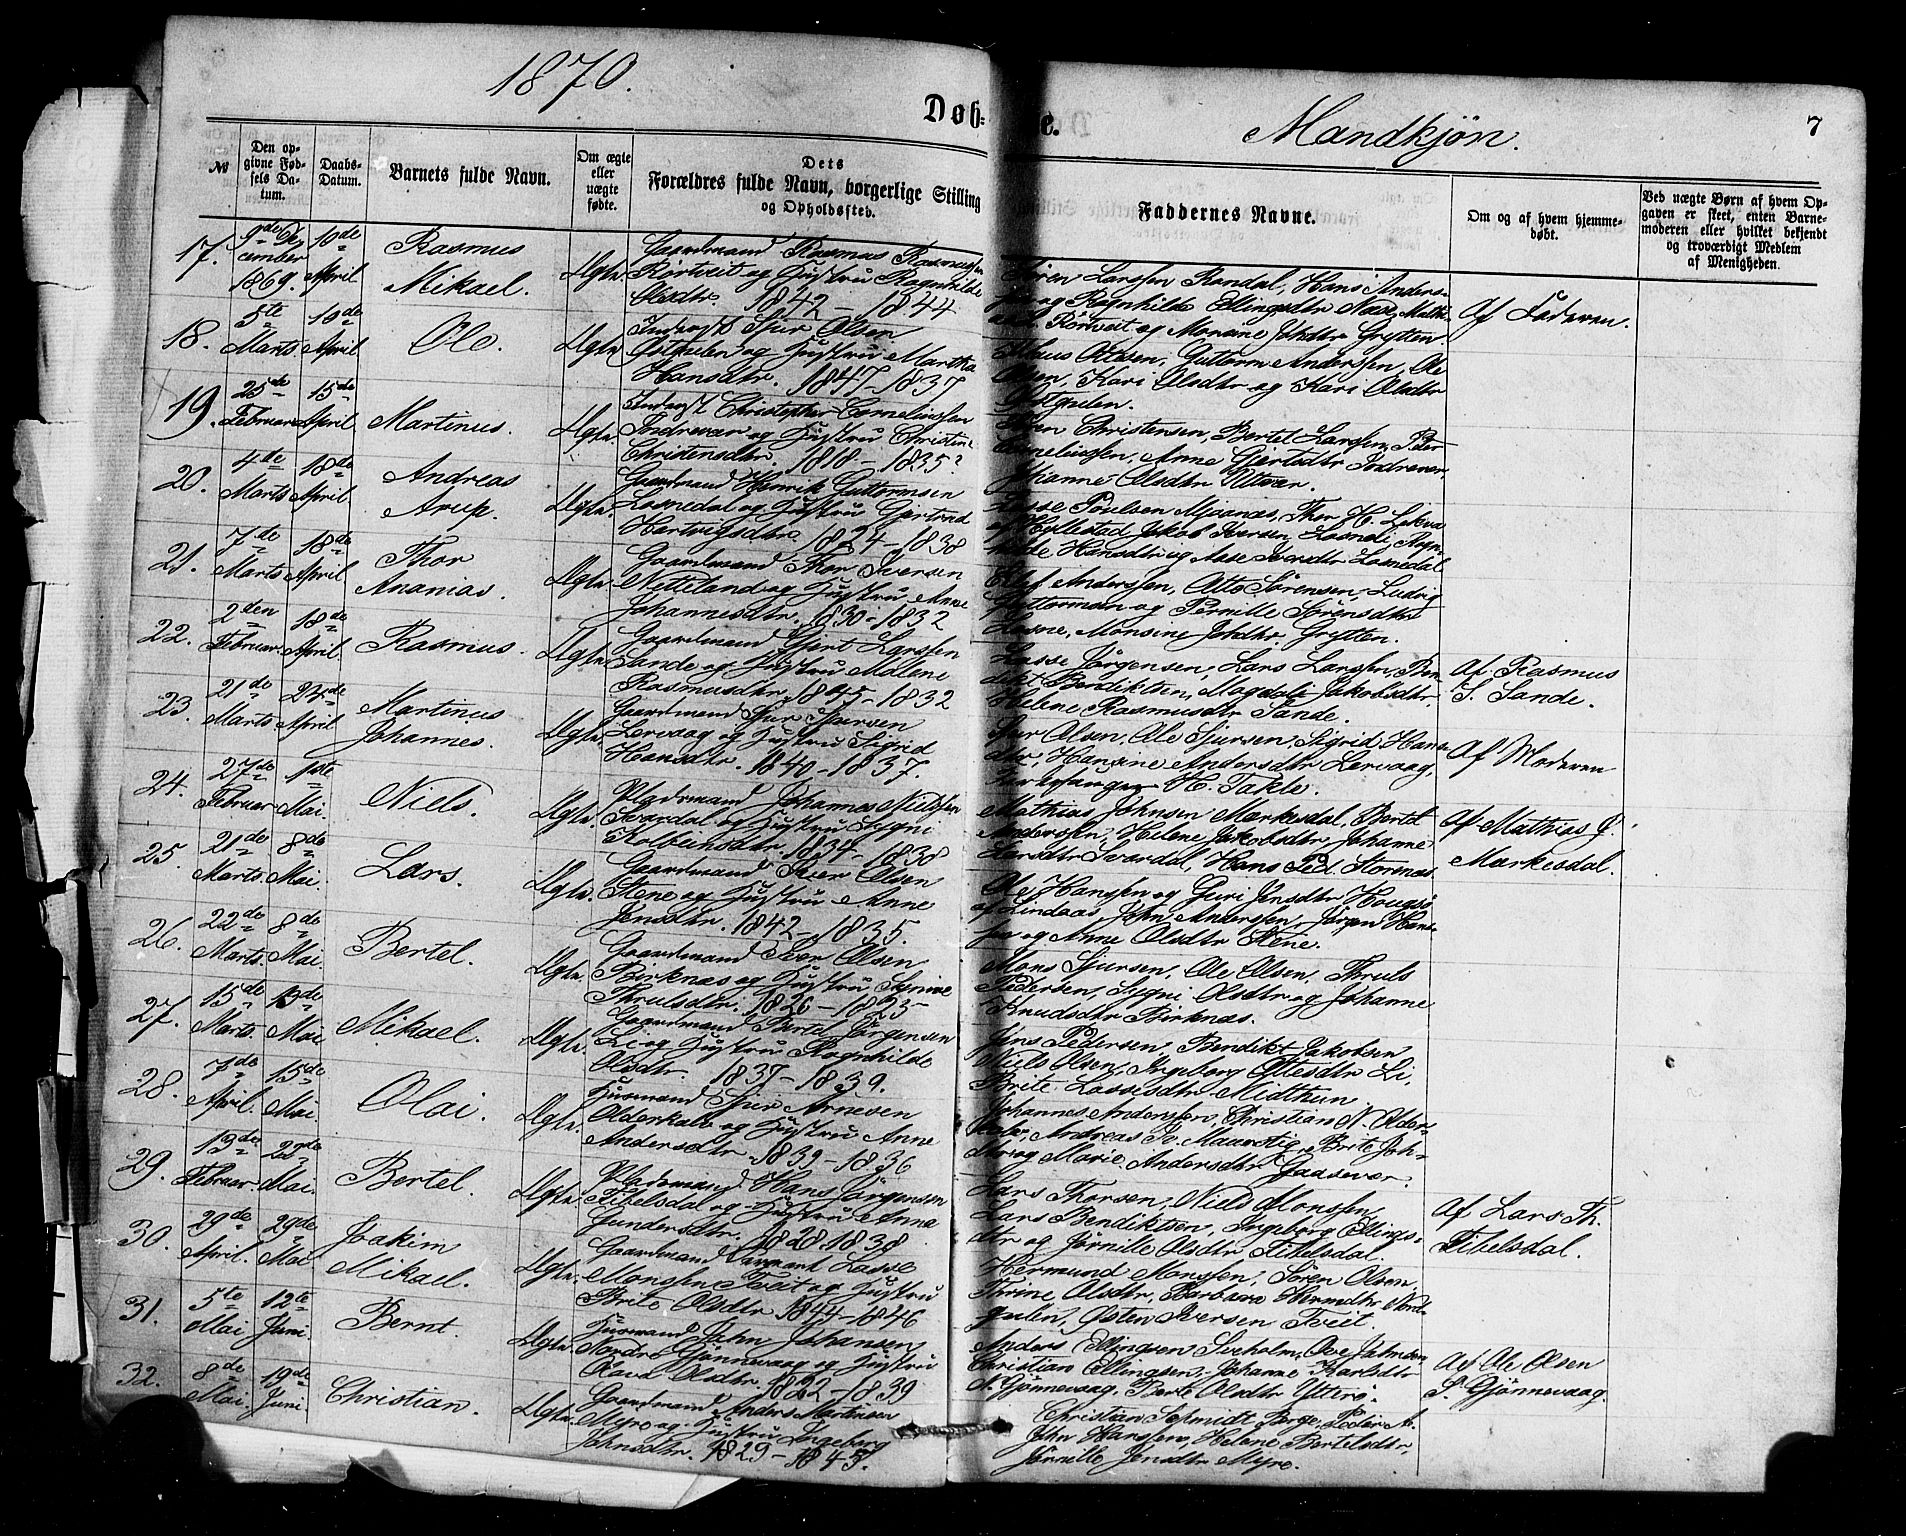 1870.
Døb-
e.
Mandkjøn.
7
№
Den op-
givne Fød-
sels Da-
tum.
Daabs-
Datum.
Barnets fulde Navn.
Om ægte
eller
uægte
fødte.
Dets
Forældres fulde Navn, borgerlige Stilling
og Opholdssted.
Faddernes Navne.
Om og af hvem hjemme-
døbt.
Ved uægte Børn af hvem Op-
gaven er skeet, enten Barne-
moderen eller hvilket bekjendt
og troværdigt Medlem
af Menigheden.
17.
9de De-
cember
1869.
10de
April
Rasmus
Mikael.
Ægte.
Gaardmand Rasmus Rasmussen
Rørtveit og Hustru Ragnhilde
Olsdtr. 1842 - 1844
Søren Larssen Rendal, Hans Anders-
og Ragnhilde Ellingsdtr Nase,
Rörtveit og Monsine Johdtr Grytten.
Af Faderen.
18.
5te
Marts
10de
April
Ole.
Ægte
Inderst Sjur Olsen
Østgulen og Hustru Martha
Hansdtr. 1847-1837
Guttorm Anderssen, Ole
Olsen, Kari Olsdtr og Kari Olsdtr
Østgulen.
19.
25de
Februar
15de
April
Martinus.
Ægte.
Inderst Christopher Corneliussen
Indrevær og Hustru Christine
Christensdtr. 1818 - 1835?
Christensen, Bertel Larssen, Peter
Corneliussen, Anne Gjertsdtr Indrevær,
Johanne Olsdtr Utvær.
20.
4de
Marts
18de
April
Andreas
Arup.
Ægte.
Gaardmand Henrik Guttormsen
Losnedal og Hustru Gjertrud
Hartvigsdtr. 1824-1838
Lasse Poulsen Mjaanes, Thor H. Lekva
af Hyllestad, Jakob Iversen Losnedal, Ragn-
hilde Hansdtr og Aase Iversdtr Losnedal
21.
7de
Marts
18de
April
Thor
Ananias.
Ægte.
Gaardmand Thor Iversen
Nytteland og Hustru Anne
Johannesdtr. 1830-1832
Anderssen, Otto Sörensen, Ludvig
Guttormsen og Pernille Sörensdtr
Losne, Monsine Johdtr. Grytten.
22.
2den
Februar
18de
April.
Rasmus.
Ægte.
Gaardmand Gjert Larssen
Sande og Hustru Malene
Rasmusdtr. 1845-1832
Lasse Jörgensen, Lars Larssen, Ben-
dikt Bendiktsen, Magdali Jakobsdtr,
Helene Rasmusdtr Sande.
Af Rasmus
S. Sande.
23.
21de
Marts
24de
April
Martinus
Johannes.
Ægte.
Gaardmand Sjur Sjursen
Lervaag og Hustru Sigrid
Hansdtr. 1840-1837.
Sjur Olsen, Ole Sjursen, Sigrid Hans-
dtr, Hansine Andersdtr Lervaag,
Kirkesanger H. Takle.
Af Moderen
24.
27de
Februar
1ste
Mai.
Niels.
Ægte.
Pladsmand Johannes Nielssen
Svardal og Hustru Sygni
Kolbeinsdtr. 1834-1838
Mathias Johnsen Mærkesdal, Bertel
Anderssen, Helene Jakobsdtr, Johanne
Larsdtr Svardal, Hans Ped. Stornæs.
Af Mathias J.
Mærkesdal.
25.
21de
Marts.
8de
Mai.
Lars.
Ægte.
Gaardmand Iver Olsen
Stene og Hustru Anne
Jensdtr. 1842-1835.
Ole Hanssen og Guri Jensdtr Hougsö
af Lindaas, John Anderssen, Jörgen Hans-
sen og Anne Olsdtr Stene.
26.
22de
Marts.
8de
Mai.
Bertel.
Ægte.
Gaardmand Iver Olsen
Birknæs og Hustru
Thrulsdtr. 1826-1825
Mons Sjursen, Ole Olsen, Thruls
Pedersen, Sygni Olsdtr og Johanne
Knudsdtr Birknæs.
27.
15de
Marts.
13de
Mai
Mikael.
Ægte.
Gaardmand Bertel Jörgensen
Li og Hustru Ragnhilde
Olsdtr. 1837-1839.
Jens Pedersen, Bendikt Jakobsen
Niels Olsen, Ingeborg Ottesdtr Li,
Brite Lassesdtr Midthun.
28.
7de
April.
15de
Mai
Olai.
Ægte.
Husmand Sjur Arnesen
Olderkalv og Hustru Anne
Andersdtr. 1839-1836
Johannes Anderssen, Christian N. Older-
kalv, Andreas Mauwstig, Brite Joh-
dtr og Marie Andersdtr Gaasevær.
29.
13de
Februar
23de
Mai.
Bertel.
Ægte.
Pladsmand Hans Jörgensen
Tibelsdal og Hustru Anna
Gundersdtr. 1828.1838
Lars Thorsen, Niels Monssen,
Lars Bendiktsen, Ingeborg Ellings-
dtr og Jörnille Olsdtr Tibelsdal.
Af Lars Th.
Tibelsdal.
30.
29de
April.
29de
Mai
Joakim
Mikael.
Ægte.
Gaardmand Lasse
Monssen Tveit og Hustru
Brite Olsdtr. 1844-1846
Hermund Monssen, Sören Olsen,
Thrine Olsdtr, Barbara Hermdtr Nord-
gulen, Østen Iversen Tveit.
31.
5te
Mai
12te
Juni.
Bernt.
Ægte.
Husmand John Johansen
Nordre Gjönnevaag og Hustru
Olava Olsdtr. 1822-1839
Anders Ellingsen Sveholm, Ove Johnsen
Christian Ellingsen, Johanne Karlsdtr
N. Gjönnevaag, Berte Olsdtr Ytterö.
Af Ole Olsen
S. Gjønnevaag.
32.
8de
Mai.
19de
Juni.
Christian.
Ægte.
Gaardmand Anders Martinsen
Myre og Hustru Ingeborg
Johnsdtr. 1829-1845.
Christian Schmidt Berge, Peder A.
John Hanssen, Helene Bertelsdtr,
Jörnille Jensdtr Myre.